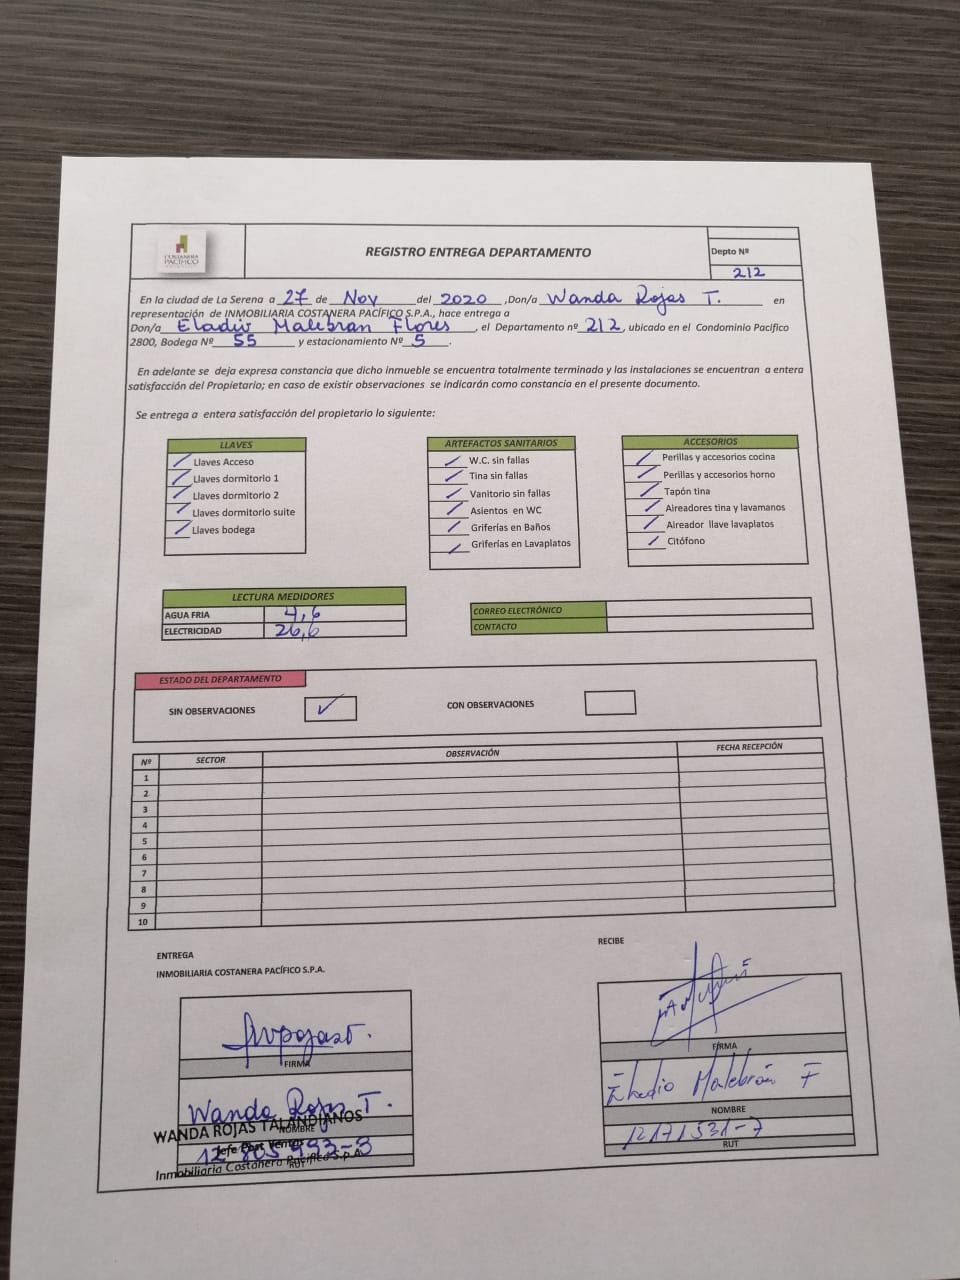 COSTANERA
PACÍFICO
REGISTRO ENTREGA DEPARTAMENTO
Depto Nº
212
En la ciudad de La Serena a 27 de Nov del 2020 ,Don/a Wanda Rojas T. en
representación de INMOBILIARIA COSTANERA PACÍFICO S.P.A., hace entrega a
Don/a Eladio Malebran Flores, el Departamento nº 212, ubicado en el Condominio Pacifico
2800, Bodega Nº 55 y estacionamiento Nº 5.
En adelante se deja expresa constancia que dicho inmueble se encuentra totalmente terminado y las instalaciones se encuentran a entera
satisfacción del Propietario; en caso de existir observaciones se indicarán como constancia en el presente documento.
Se entrega a entera satisfacción del propietario lo siguiente:
LLAVES
Llaves Acceso
Llaves dormitorio 1
Llaves dormitorio 2
Llaves dormitorio suite
Llaves bodega
ARTEFACTOS SANITARIOS
W.C. sin fallas
Tina sin fallas
Vanitorio sin fallas
Asientos en WC
Griferías en Baños
Griferías en Lavaplatos
ACCESORIOS
Perillas y accesorios cocina
Perillas y accesorios horno
Tapón tina
Aireadores tina y lavamanos
Aireador llave lavaplatos
Citófono
LECTURA MEDIDORES
AGUA FRIA 4,6
ELECTRICIDAD 26,6
CORREO ELECTRÓNICO
CONTACTO
ESTADO DEL DEPARTAMENTO
SIN OBSERVACIONES
CON OBSERVACIONES
Nº SECTOR OBSERVACIÓN FECHA RECEPCIÓN
1
2
3
4
5
6
7
8
9
10
ENTREGA
INMOBILIARIA COSTANERA PACÍFICO S.P.A.
FIRMA
Wanda Rojas T.
NOMBRE
WANDA ROJAS TALANDIANOS
Jefe Post Ventas
12 805 993-3
Inmobiliaria Costanera Pacifico S.p.A
RUT
RECIBE
FIRMA
Eladio Malebrán F
NOMBRE
12171531-7
RUT